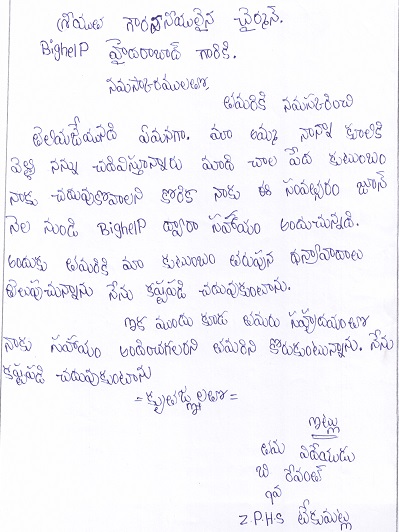 శ్రీయుత గౌరవనీయులైన చైర్మన్.
BigheIP హైదరాబాద్ గారికి.
నమస్కారములతో,
తమరికి నమస్కరించి
తెలియజేయునది ఏమనగా. మా అమ్మ నాన్న కూలికి
వెళ్లి నన్ను చదివిస్తున్నారు మాది చాల పేద కుటుంబం
నాకు చదువుకోవాలని కోరిక నాకు ఈ సంవత్సరం జూన్
నెల నుండి BigheIP ద్వారా సహాయం అందుచున్నది.
అందుకు తమరికి మా కుటుంబం తరుపున ధన్యవాదాలు
తెలుపుచున్నాను నేను కష్టపడి చదువుకుంటాను.
ఇక ముందు కూడ తమరు సహృదయంతో
నాకు సహాయం అందించగలరని తమరిని కోరుకుంటున్నాను. నేను
కష్టపడి చదువుకుంటాను
=కృతజ్ఞతలతో=
ఇట్లు
తమ విదేయుడు
బి రేవంత్
Z.P.H.S టేకుమట్ల